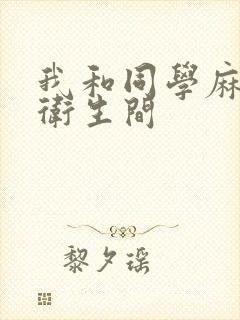 我和同學麻
衛生間
黎夕瑶